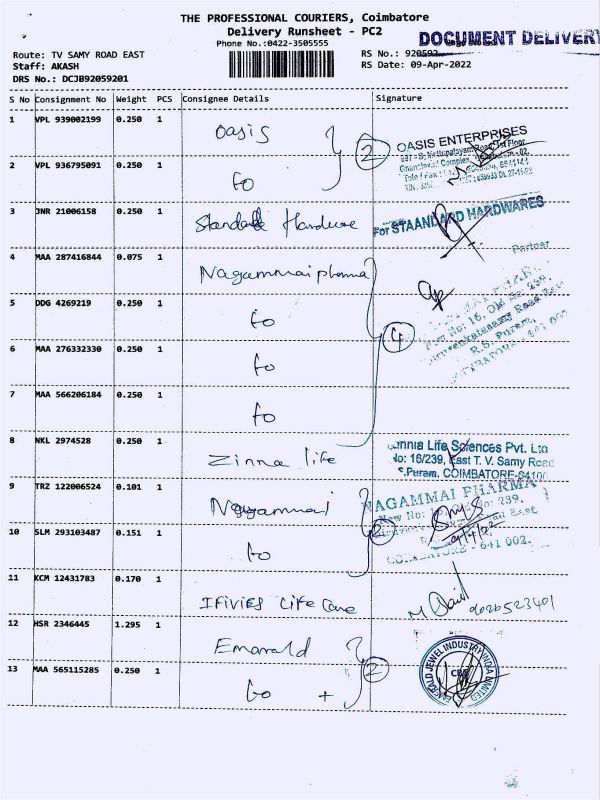 THE PROFESSIONAL COURIERS, Coimbatore
Delivery Runsheet - PC2
Phone No.:0422-3505555
DOCUMENT DELIVERY
Route: TV SAMY ROAD EAST
Staff: AKASH
DRS No.: DCJB92059201
RS No.: 920592
RS Date: 09-Apr-2022
S No Consignment No Weight PCS Consignee Details Signature
1 VPL 939002199 0.250 1 Oasis
2
OASIS ENTERPRISES
2 VPL 936795091 0.250 1 to
3 JNR 21006158 0.250 1 Standard Hardware
For STAANDARD HARDWARES
Partner
4 MAA 287416844 0.075 1 Nagammai pharma
5 DDG 4269219 0.250 1 to
4
R.S. Puram,
6 MAA 276332330 0.250 1 to
7 MAA 566206184 0.250 1 to
8 NKL 2974528 0.250 1 Zinna life
Life Sciences Pvt. Ltd
No: 16/239, East T. V. Samy Road
S.Puram, COIMBATORE-6410
9 TRZ 122006524 0.101 1 Nagammai
NAGAMMAI PHARMA
New No: 239,
2
10 SLM 293103487 0.151 1 to
COIMBATORE - 641 002.
11 KCM 12431783 0.170 1 Ifivies Life Care
12 HSR 2346445 1.295 1 Emarald
2
EMERALD JEWEL INDUSTRY INDIA LIMITED
CBE
13 MAA 565115285 0.250 1 to +